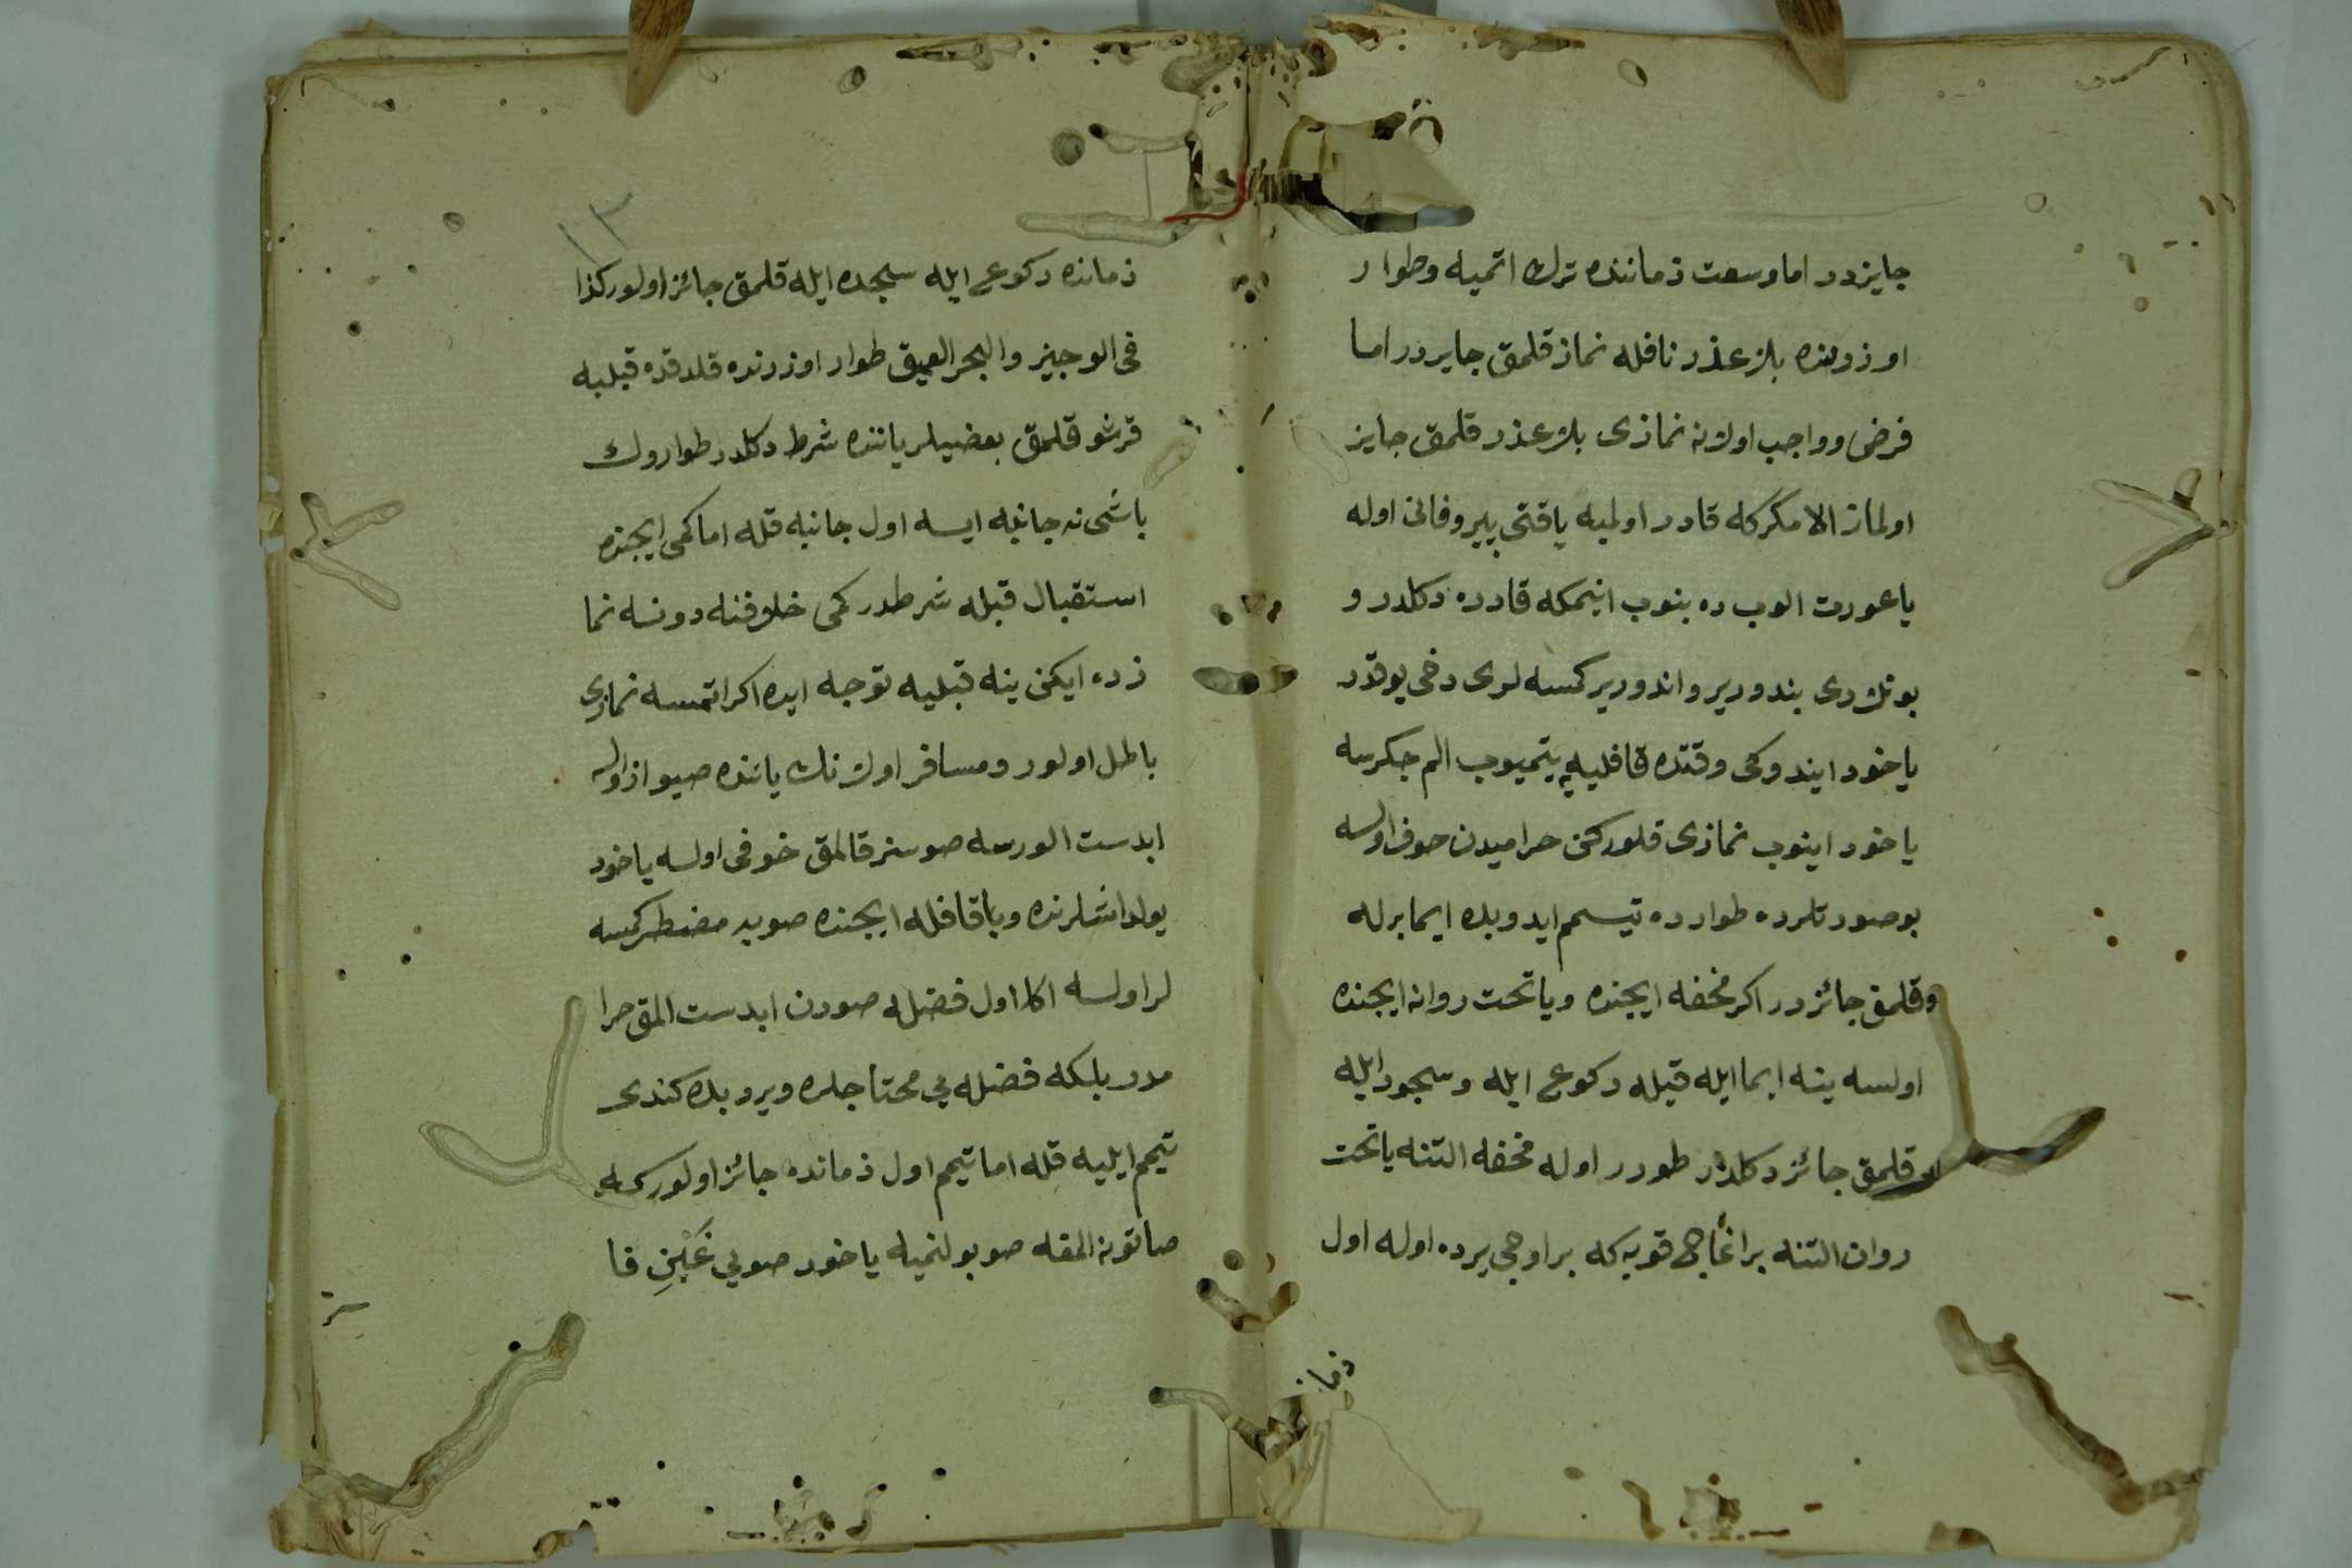 جايزدر اما وسعت زماننده ترك اتميه وطوار
اوزرنده بلا عذر نافله نماز قلمق جايردر اما
فرض وواجب اولانه نمازى بلا عذر قلمق جايز
اولماز الا مكركه قادر اولميه ياقتى پير وفانى اوله
ياعورت الوب ده بنوب اينمكه قادره دكلدر و
بونلردى بندورير واندورير كمسه لرى دخى يوقدر
ياخود ايندوكى وقتده قافليه يتميوب الم چكرسه
ياخود اينوب نمازى قلوركن حراميدن خوف اولسه
بوصورتلرده طوارده تيمم ايدوبده ايما برله
وقلمق جائزدر اكر محفه ايچنده وياتحت روانه ايچنده
اولسه ينه ايما ايله قيله ركوع ايله وسجود ايله
قلمق جائز دكلدر طورر اوله محفه التنه ياتحت
روان التنه براغاج قويه كه براوجى يرده اوله اول
زمانـ
١٣
زمانده ركوع ايله سجده ايله قلمق جائز اولور كذا
فى الوجيز والبحر العميق طوار اوزرنده قلدقده قبليه
قرشو قلمق بعضيلر ياننده شرط دكلدر طواروك
باشى نه جانبه ايسه اول جانبه قله اما كمى ايچنده
استقبال قبله شرطدر كمى خلافنه دونسه نما
زده ايكن ينه قبليه توجه ايده اكر اتمسه نمازى
باطل اولور ومسافر اولانك ياننده صيو از اولسه
ابدست الورسه صوسز قالمق خوفى اولسه ياخود
يولداشلرنده وياقافله ايچنده صويه مضطر كمسه
لر اولسه اكا اول فضله صودن ابدست المق حرا
مدر بلكه فضله يى محتاجلره ويروبده كندى
تيمم ايليه قله اما تيمم اول زمانده جائز اولوركه
صاتون المقه صو بولنميه ياخود صويى غَبْنِ فا